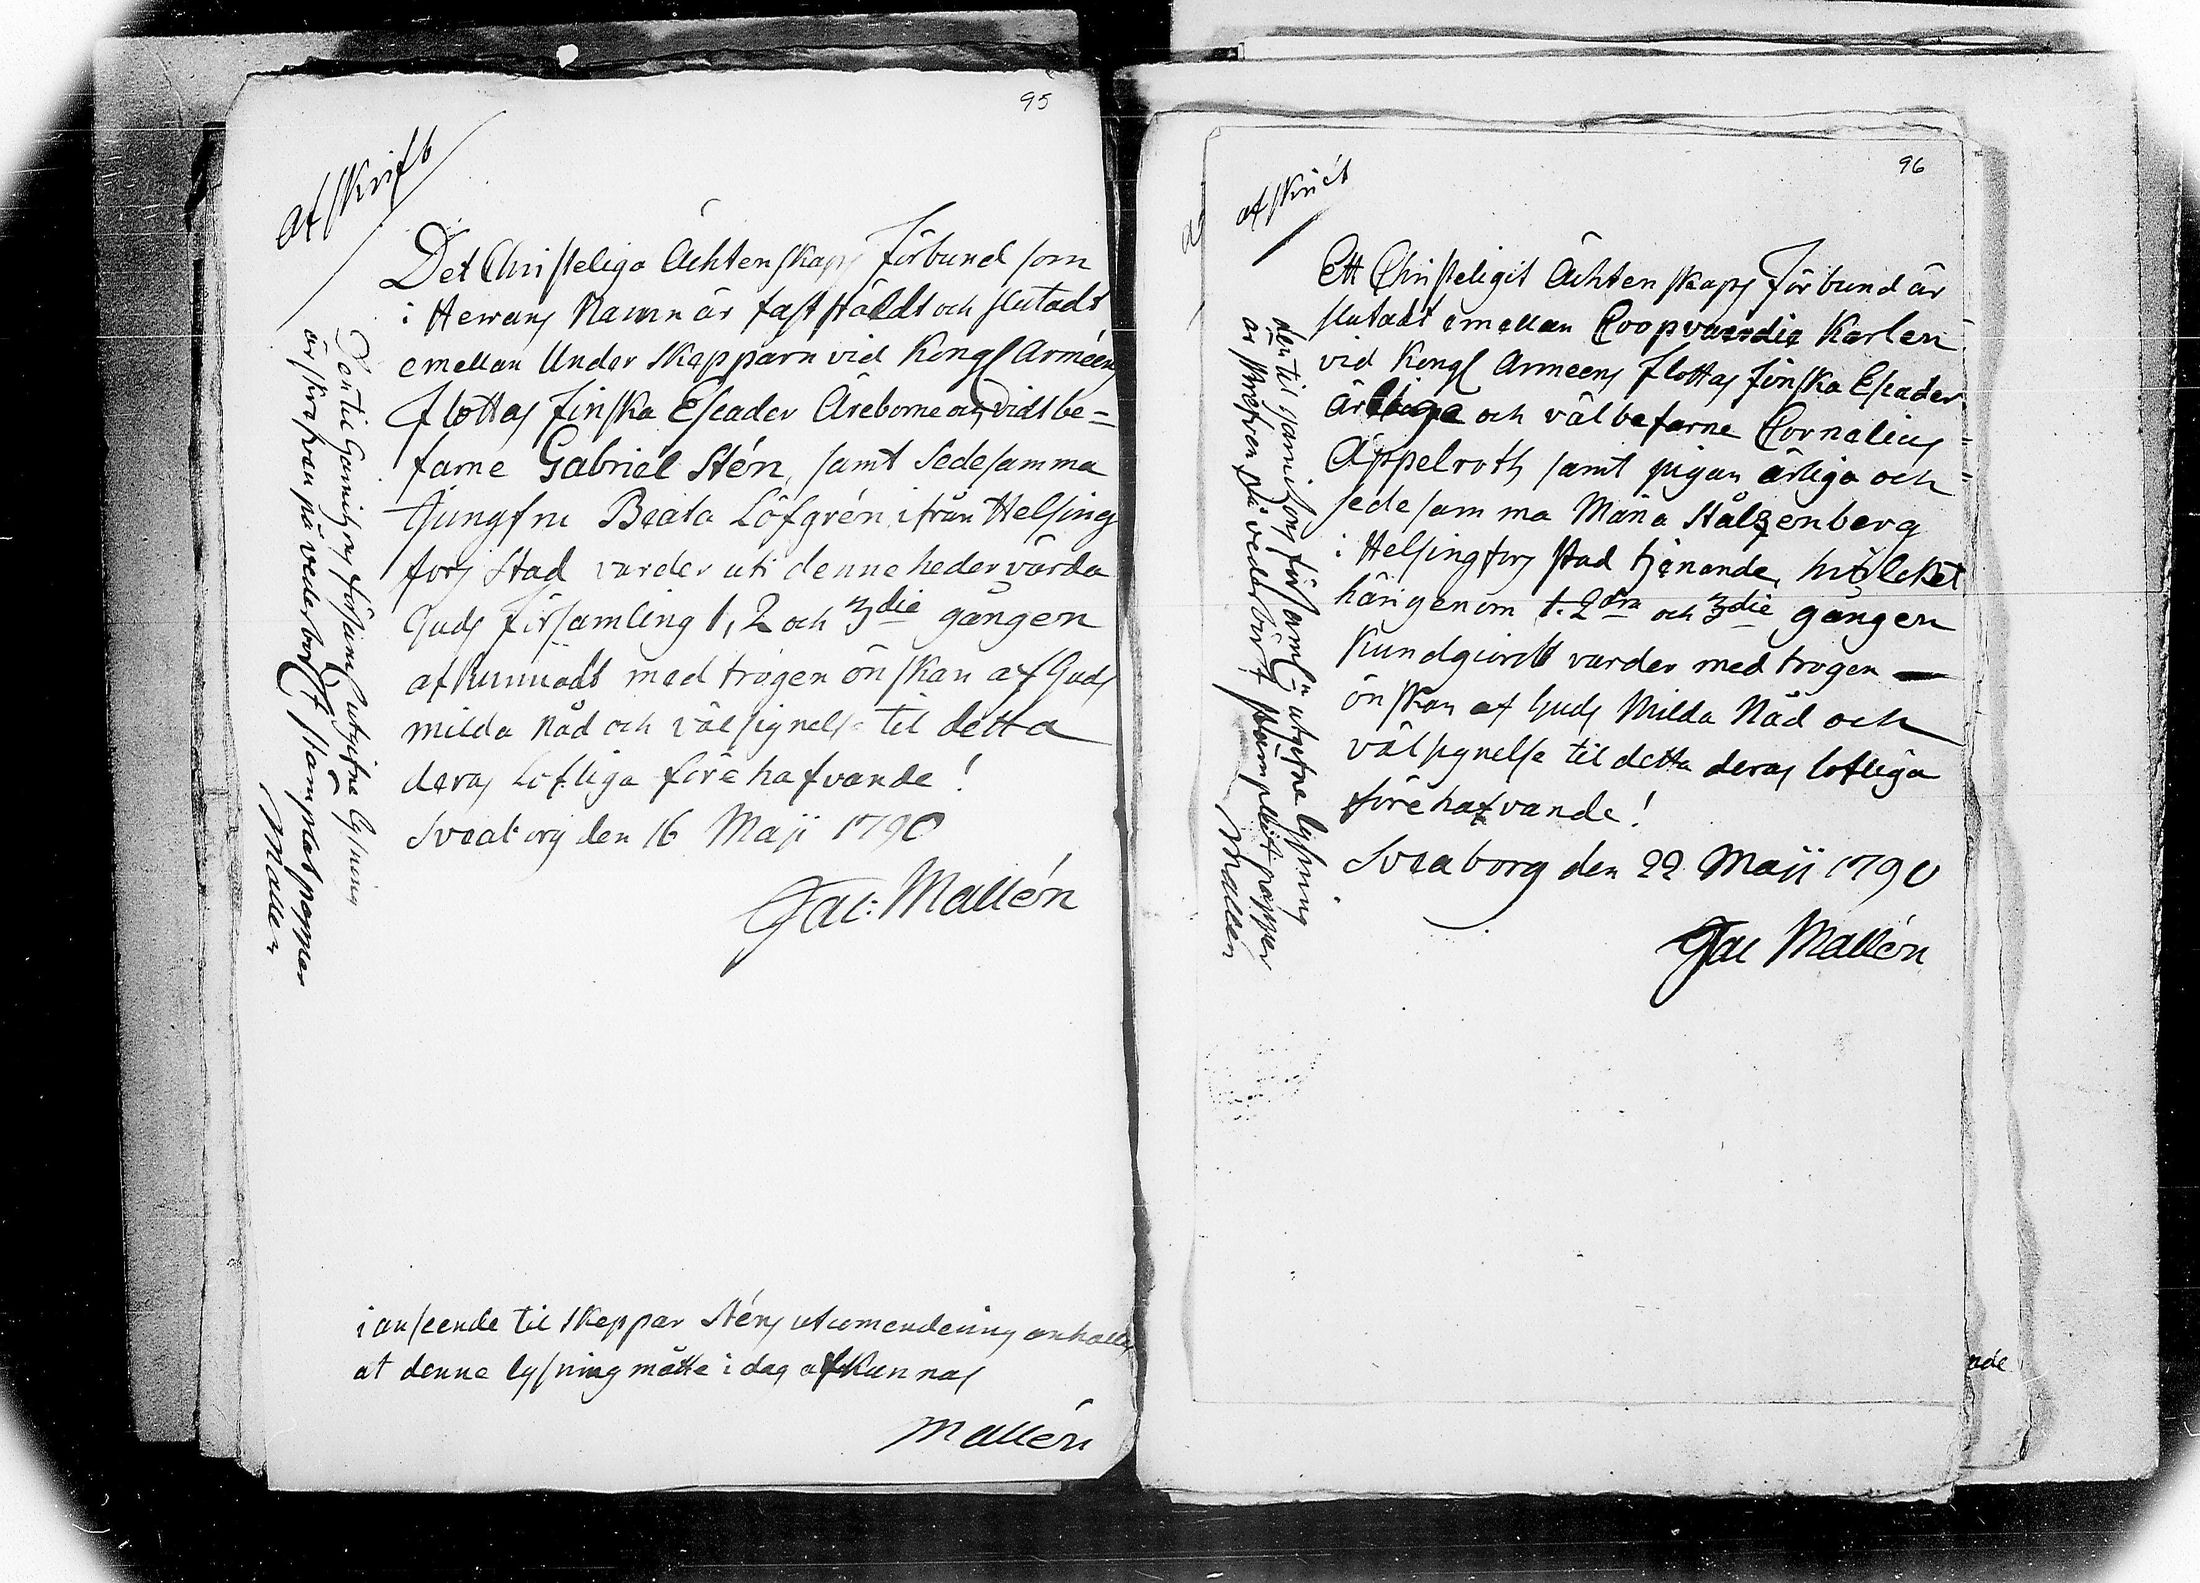 95
afskrift
Det ChristeligaÄchtenskaps Förbund som
i Herrans Namn är fast stäldt och slutadt
emellan Under Skepparn vid Kongl Arméens
Flottas Finska Escader Äreborne och vidt be=
farne Gabriel Stén, samt Sedesamma
Jungfru Beata Löfgrén ifrån Helsing
fors Stad varder uti denne hedervärda
Guds församling 1, 2 och 3die gången
afkunnadt med trogen önskan af Guds
milda Nåd och välsignelse til detta
deras Lofliga förehafvande!
Sveaborg den 16 Maji 1790
Jac: Mallén
Den til Garnizons församl utgifne Lysning
är skrefven på vederbörl Stämplat papper
Mallén
i anseende til Skeppar Sténs utcomendering anhålles
at denne lysning måtte i dag afkunnas
Mallén
96
afskrift
Ett Christeligit Ächtenskaps Förbund är
slutadt emellan Coopvaerdie Karlen
vid Kongl Armeens flottas finska Escader
ärlige och välbefarne Cornelius
Äppelroth samt pigan ärliga och
sedesamma Maria Stålzenberg
i Helsingfors stad tjenande, hvilcket
härigenom 1. 2dra och 3die gången
Kundgiordt varder med trogen
önskan af Guds Milda Nåd och
välsignelse til detta deras lofliga
förehafvande!
Sveaborg den 22 Maji 1790
Jac Mallén
den til garnizons församl utgifne lysning
är skrefven på vederbörl stämplat papper
Mallén
nde